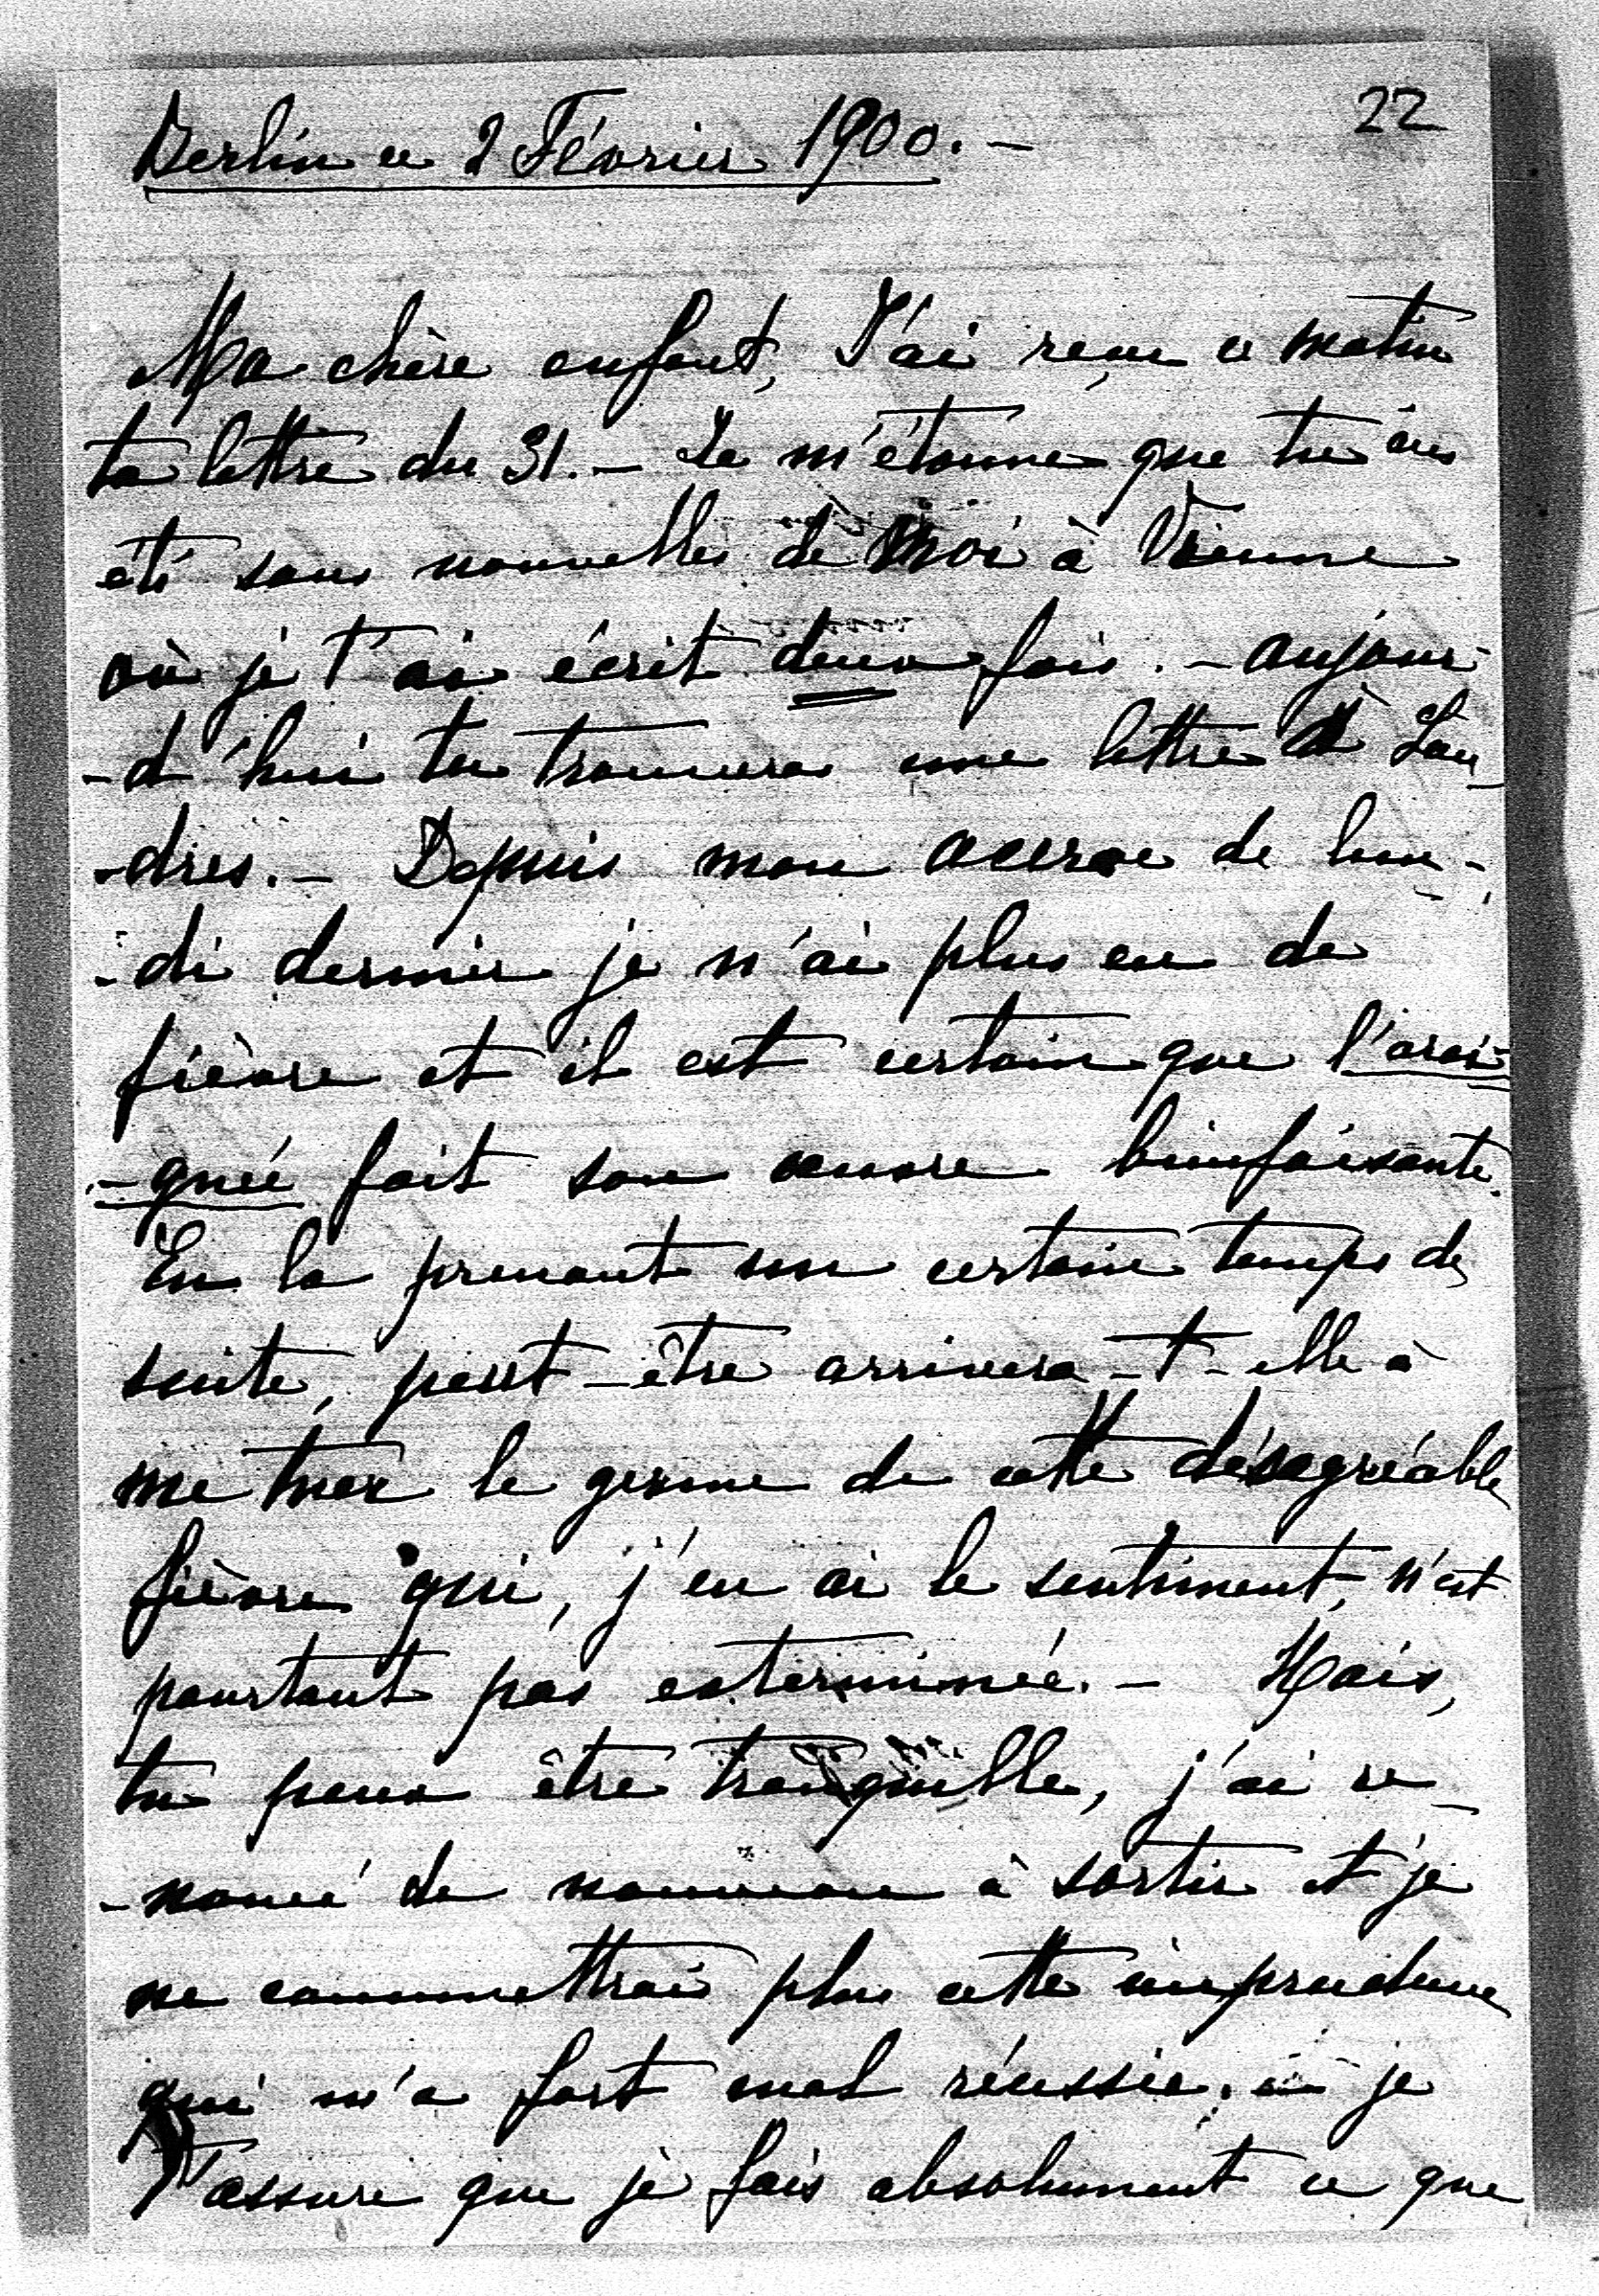 22
Berlin ce 2 Février 1900. -
Ma chère enfant, J'ai reçu ce matin
ta lettre du 31. - Je m'étonne que tu aies
été sans nouvelles de moi à Vienne
où je t'ai écrit deux fois. - aujour-
-d'hui tu trouveras une lettre à Lon-
-dres. - Depuis mon accroc de lun-
-di dernier je n'ai plus eu de
fièvre et il est certain que l'arai-
-gnée fait son oeuvre bienfaisante.
En la prenant un certain temps de
suite, peut-être arrivera-t-elle à
me tuer le germe de cette désagréable
fièvre qui, j'en ai le sentiment, n'est
pourtant pas exterminée. - Mais,
tu peux être tranquille, j'ai re-
-noncé de nouveau à sortir et je
ne commettrai plus cette imprudence
qui m'a fort mal réussie, je
t'assure que je fais absolument ce que